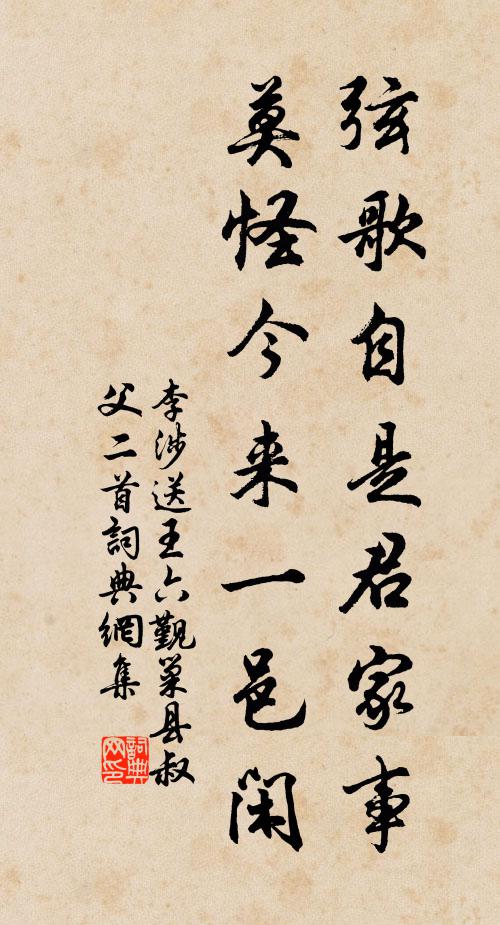 弦歌自是君家事
莫怪今来一邑闲
李涉送王六觐巢县叔
父二首詞典網集
詞典网印